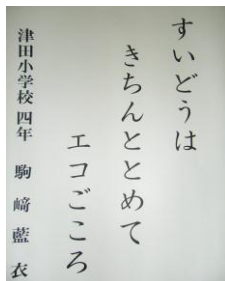 すいどうは
きちんととめて
エコごころ
津田小学校 四年 駒﨑藍衣